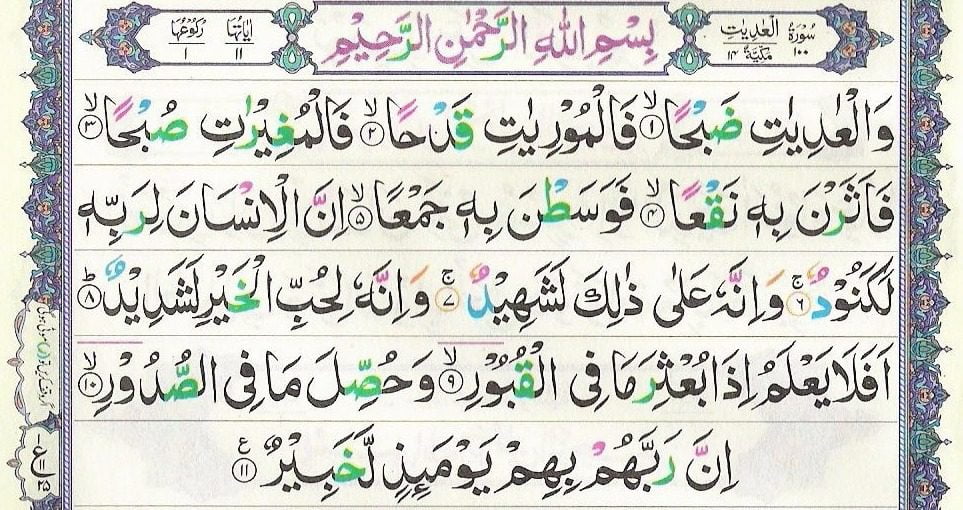 سُوْرَةُ الْعٰدِيٰتِ
١٠٠ مَكِّيَّةٌ ١٤
بِسْمِ اللّٰهِ الرَّحْمٰنِ الرَّحِيْمِ
اٰيَاتُهَا ١١
رُكُوْعُهَا ١
وَالْعٰدِيٰتِ ضَبْحًا ۙ﴿١﴾ فَالْمُوْرِيٰتِ قَدْحًا ۙ﴿٢﴾ فَالْمُغِيْرٰتِ صُبْحًا ۙ﴿٣﴾
فَاَثَرْنَ بِهٖ نَقْعًا ۙ﴿٤﴾ فَوَسَطْنَ بِهٖ جَمْعًا ۙ﴿٥﴾ اِنَّ الْاِنْسَانَ لِرَبِّهٖ
لَكَنُوْدٌ ۚ﴿٦﴾ وَاِنَّهٗ عَلٰى ذٰلِكَ لَشَهِيْدٌ ۚ﴿٧﴾ وَاِنَّهٗ لِحُبِّ الْخَيْرِ لَشَدِيْدٌ ؕ﴿٨﴾
اَفَلَا يَعْلَمُ اِذَا بُعْثِرَ مَا فِى الْقُبُوْرِ ۙ﴿٩﴾ وَحُصِّلَ مَا فِى الصُّدُوْرِ ۙ﴿١٠﴾
اِنَّ رَبَّهُمْ بِهِمْ يَوْمَئِذٍ لَّخَبِيْرٌ ﴿١١﴾ ع